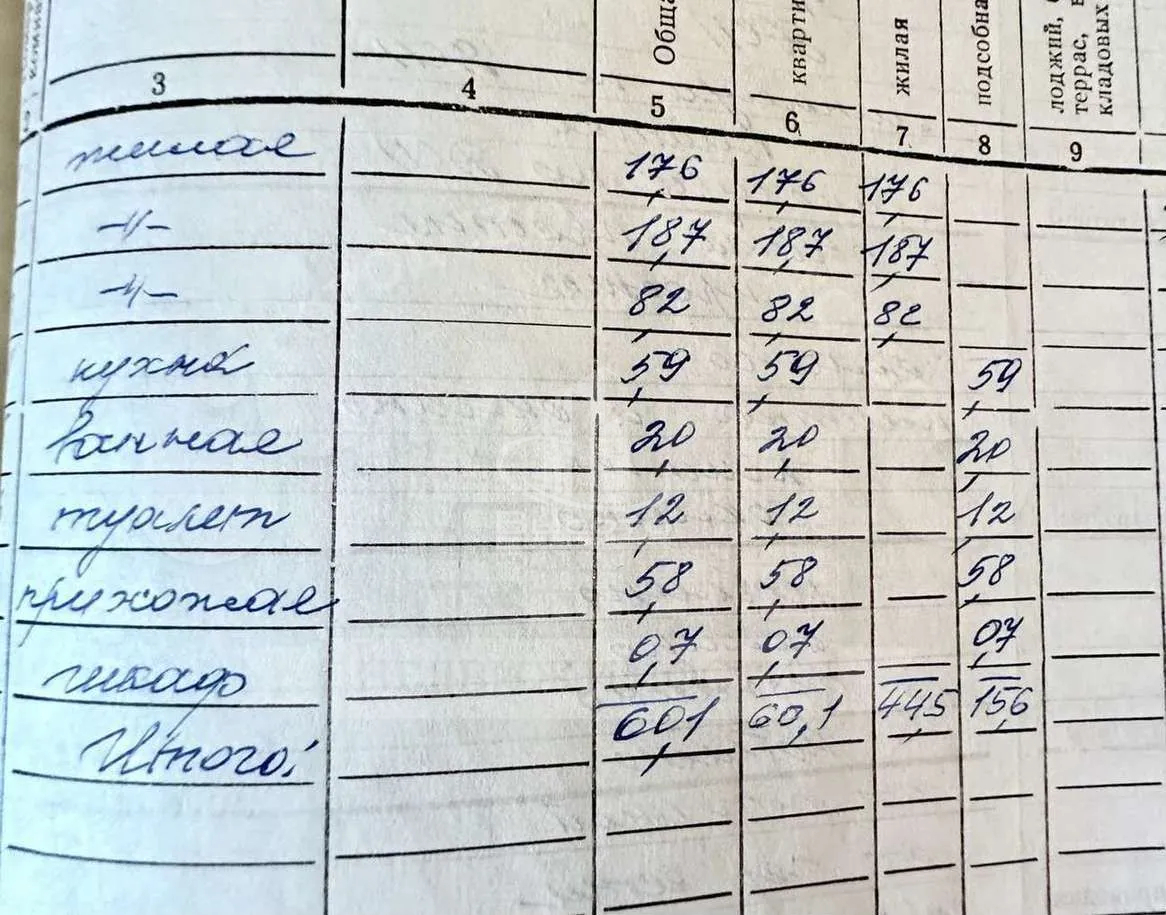 Обща
кварти
жилая
подсобна
лоджий,
террас,
кладовых
3 4 5 6 7 8 9
жилая 17,6 17,6 17,6
-"- 18,7 18,7 18,7
-"- 8,2 8,2 8,2
кухня 5,9 5,9 5,9
ванная 2,0 2,0 2,0
туалет 1,2 1,2 1,2
прихожая 5,8 5,8 5,8
шкаф 0,7 0,7 0,7
Итого: 60,1 60,1 44,5 15,6